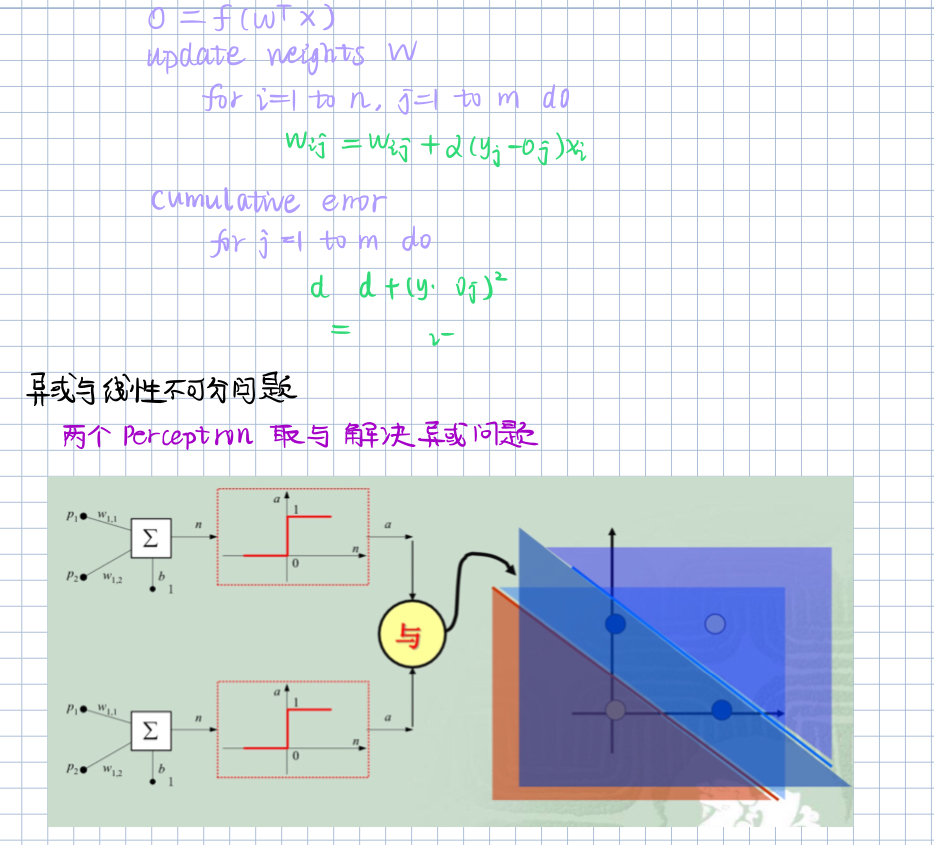 O = f(wᵀx)
update weights W
for i=1 to n, j=1 to m do
wij = wij + α(yj - oj)xi
cumulative error
for j=1 to m do
d d + (y. oj)²
=
异或与线性不可分问题
两个 Perceptron 取与 解决 异或问题
p1 w1,1
Σ
n
a
1
n
0
a
p2 w1,2
b
1
与
p1 w1,1
Σ
n
a
1
n
0
a
p2 w1,2
b
1